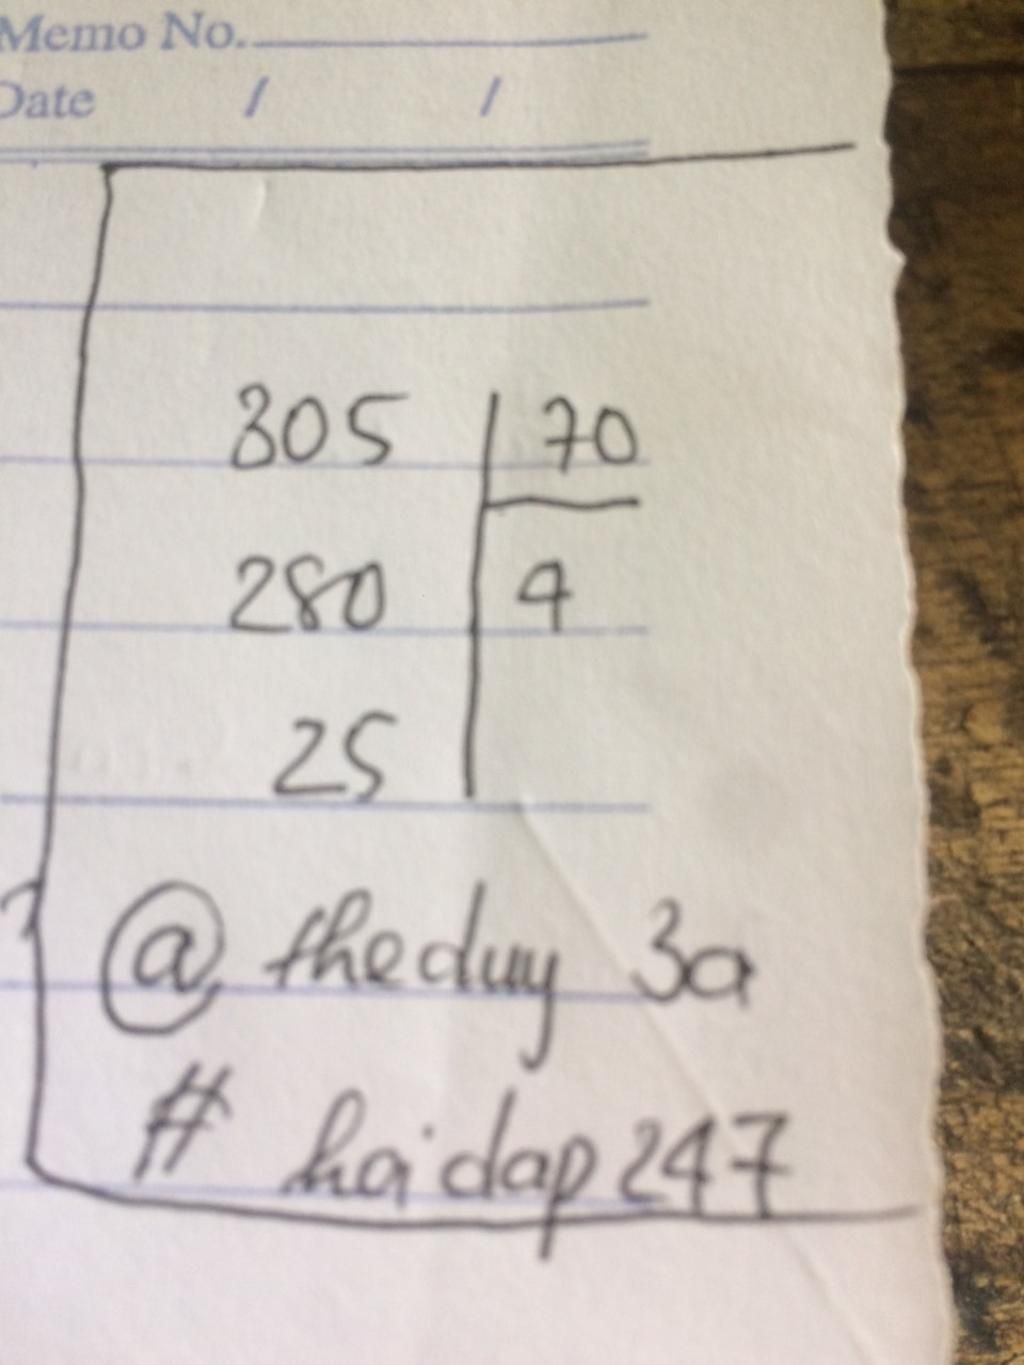 Memo No.
Date / /
305 70
280 4
25
@ theduy 3a
# hoidap247